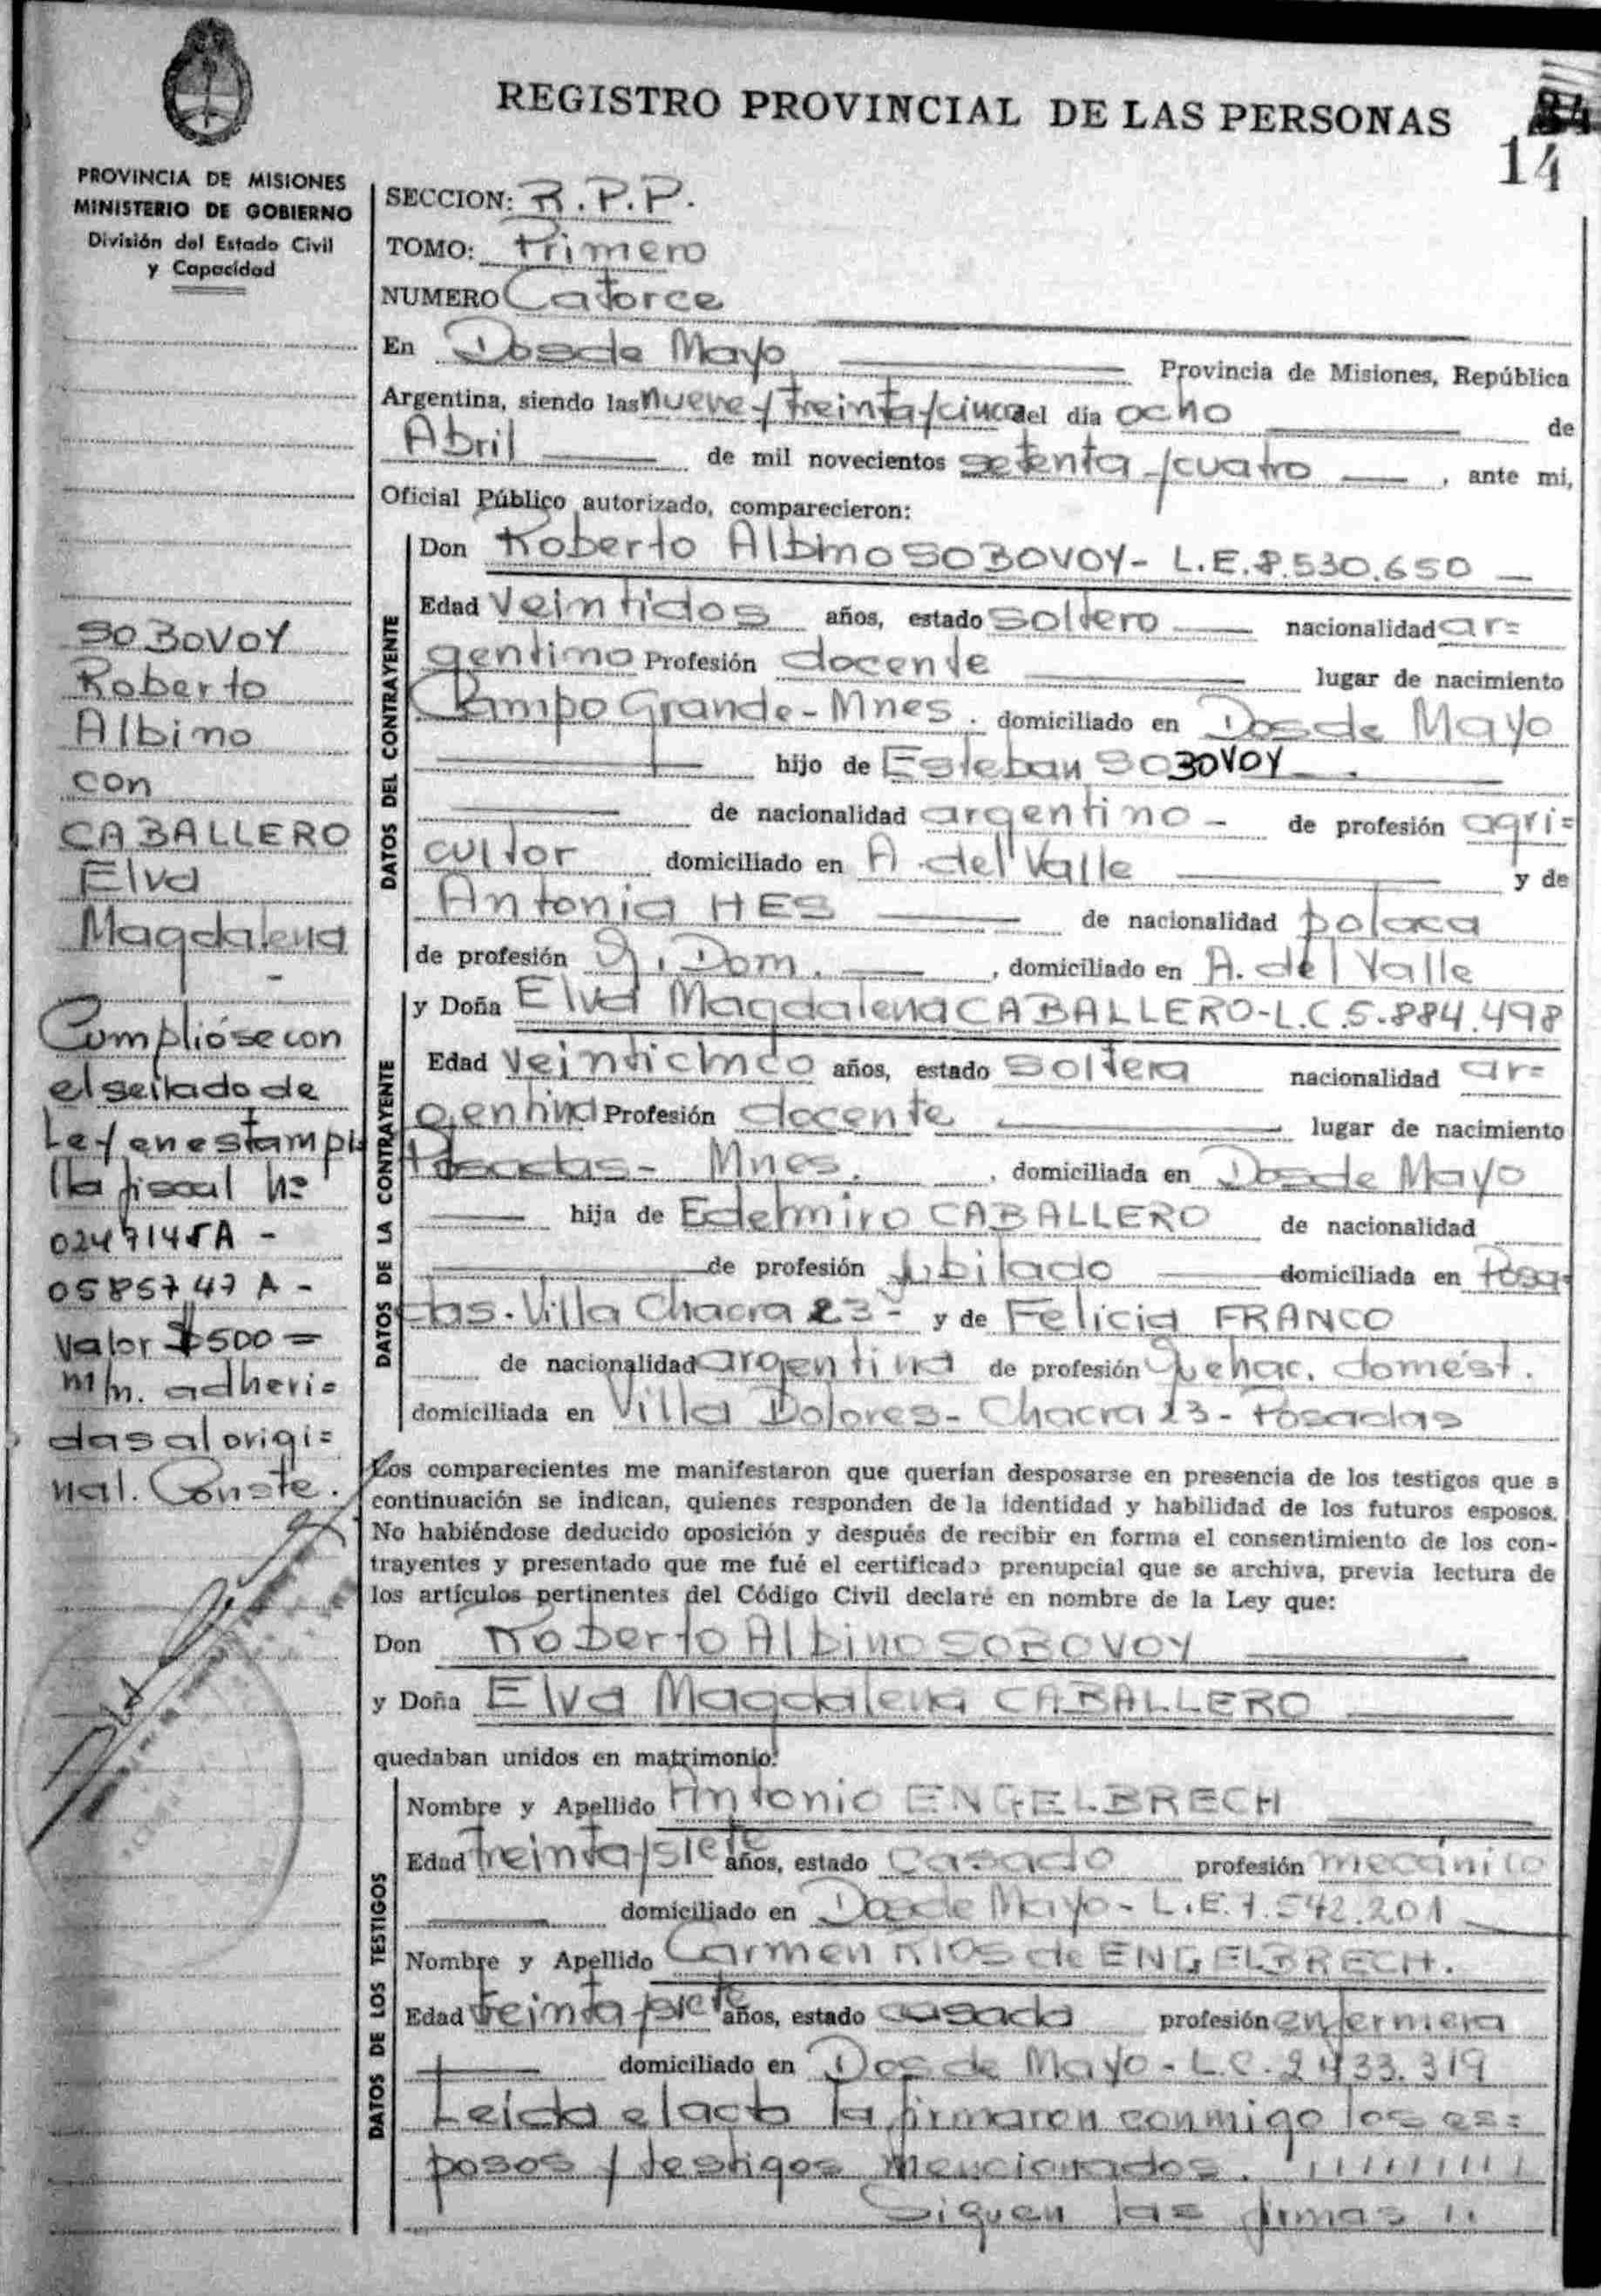 REGISTRO PROVINCIAL DE LAS PERSONAS
14
PROVINCIA DE MISIONES
MINISTERIO DE GOBIERNO
División del Estado Civil
y Capacidad
SOBOVOY
Roberto
Albino
con
CABALLERO
Elva
Magdalena
-
Cumplióse con
el sellado de
Ley en estampi
lla fiscal Nº
0247145A -
0585747 A -
Valor $500=
m/n. adheri=
das al origi=
nal. Conste.
SECCION: R.P.P.
TOMO: Primero
NUMERO Catorce
En Dos de Mayo Provincia de Misiones, República
Argentina, siendo las nueve y treinta y cinco del día ocho de
Abril de mil novecientos setenta y cuatro, ante mi,
Oficial Público autorizado, comparecieron:
DATOS DEL CONTRAYENTE
Don Roberto Albino SOBOVOY- L.E.8.530.650
Edad veintidos años, estado soltero nacionalidad ar=
gentino Profesión docente lugar de nacimiento
Campo Grande-Mnes. domiciliado en Dos de Mayo
hijo de Esteban SOBOVOY
de nacionalidad argentino - de profesión agri=
cultor domiciliado en A. del Valle y de
Antonia HES de nacionalidad polaca
de profesión Q. Dom. , domiciliado en A. del Valle
DATOS DE LA CONTRAYENTE
y Doña Elva Magdalena CABALLERO-L.C.5.884.498
Edad veinticinco años, estado soltera nacionalidad ar=
gentina Profesión docente lugar de nacimiento
Posadas- Mnes. , domiciliada en Dos de Mayo
hija de Edelmiro CABALLERO de nacionalidad
de profesión jubilado domiciliada en Posa-
das. Villa Chacra 23- y de Felicia FRANCO
de nacionalidad argentina de profesión Quehac. domést.
domiciliada en Villa Dolores- Chacra 23- Posadas
Los comparecientes me manifestaron que querían desposarse en presencia de los testigos que a
continuación se indican, quienes responden de la identidad y habilidad de los futuros esposos.
No habiéndose deducido oposición y después de recibir en forma el consentimiento de los con-
trayentes y presentado que me fué el certificado prenupcial que se archiva, previa lectura de
los artículos pertinentes del Código Civil declaré en nombre de la Ley que:
Don Roberto Albino SOBOVOY
y Doña Elva Magdalena CABALLERO
quedaban unidos en matrimonio:
DATOS DE LOS TESTIGOS
Nombre y Apellido Antonio ENGELBRECH
Edad treinta y siete años, estado casado profesión mecánico
domiciliado en Dos de Mayo- L.E.7.542.201
Nombre y Apellido Carmen RIOS de ENGELBRECH.
Edad treinta y siete años, estado casada profesión enfermera
domiciliado en Dos de Mayo- L.C.2.433.319
Leída el acta la firmaron conmigo los es=
posos y testigos mencionados.
Siguen las firmas